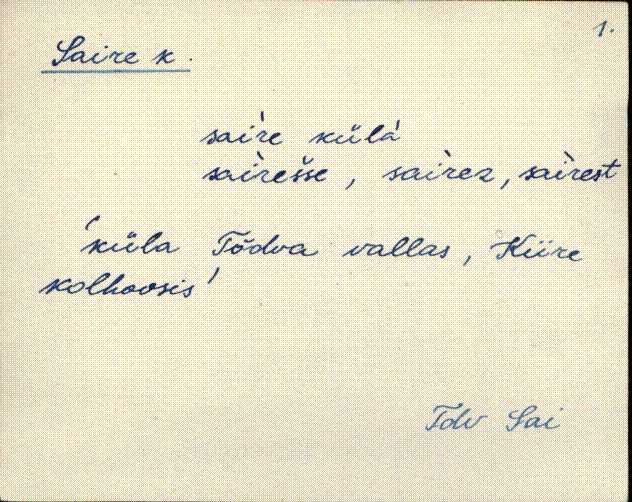 1.
Saire k.
sai̬re külä
saìrešse, saìrez, saìrest
'küla Tõdva vallas, Kiire
kolhoosis'
Tdv Sai